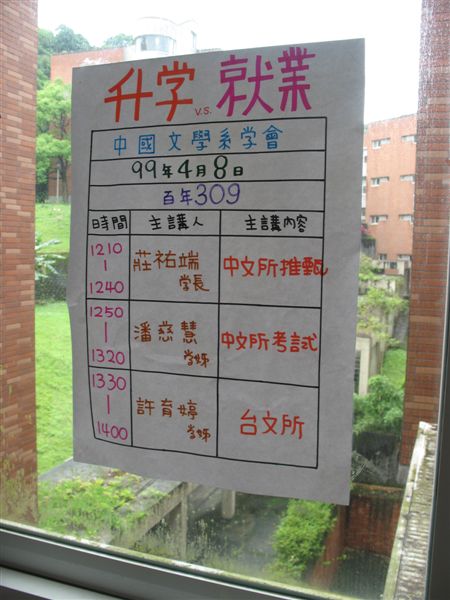 升学 v.s. 就業
中國文學系学會
99年4月8日
百年309
時間 主講人 主講內容
1210 | 1240 莊祐端 学長 中文所推甄
1250 | 1320 潘慈慧 学姊 中文所考試
1330 | 1400 許育婷 学姊 台文所